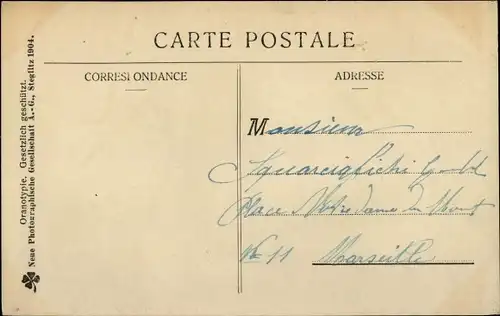 CARTE POSTALE
CORRESPONDANCE
ADRESSE
Monsieur
Place Notre Dame du Mont
No 11 Marseille
Oranotypie. Gesetzlich geschützt.
Neue Photographische Gesellschaft A.-G., Steglitz 1904.